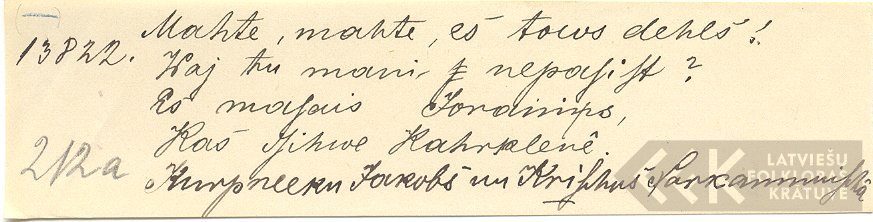 (—)
13822.
Mahte, mahte, eś tows dehlś!
Waj tu mani nepaſiſt?
Es maſais Joranips,
Kaś ſihwe Kahrklenê.
Kurpneeku Jakobś un Kriſchuś Sarkanmuiſchâ
212a
LATVIEŠU
FOLKLORAS
KRĀTUVE